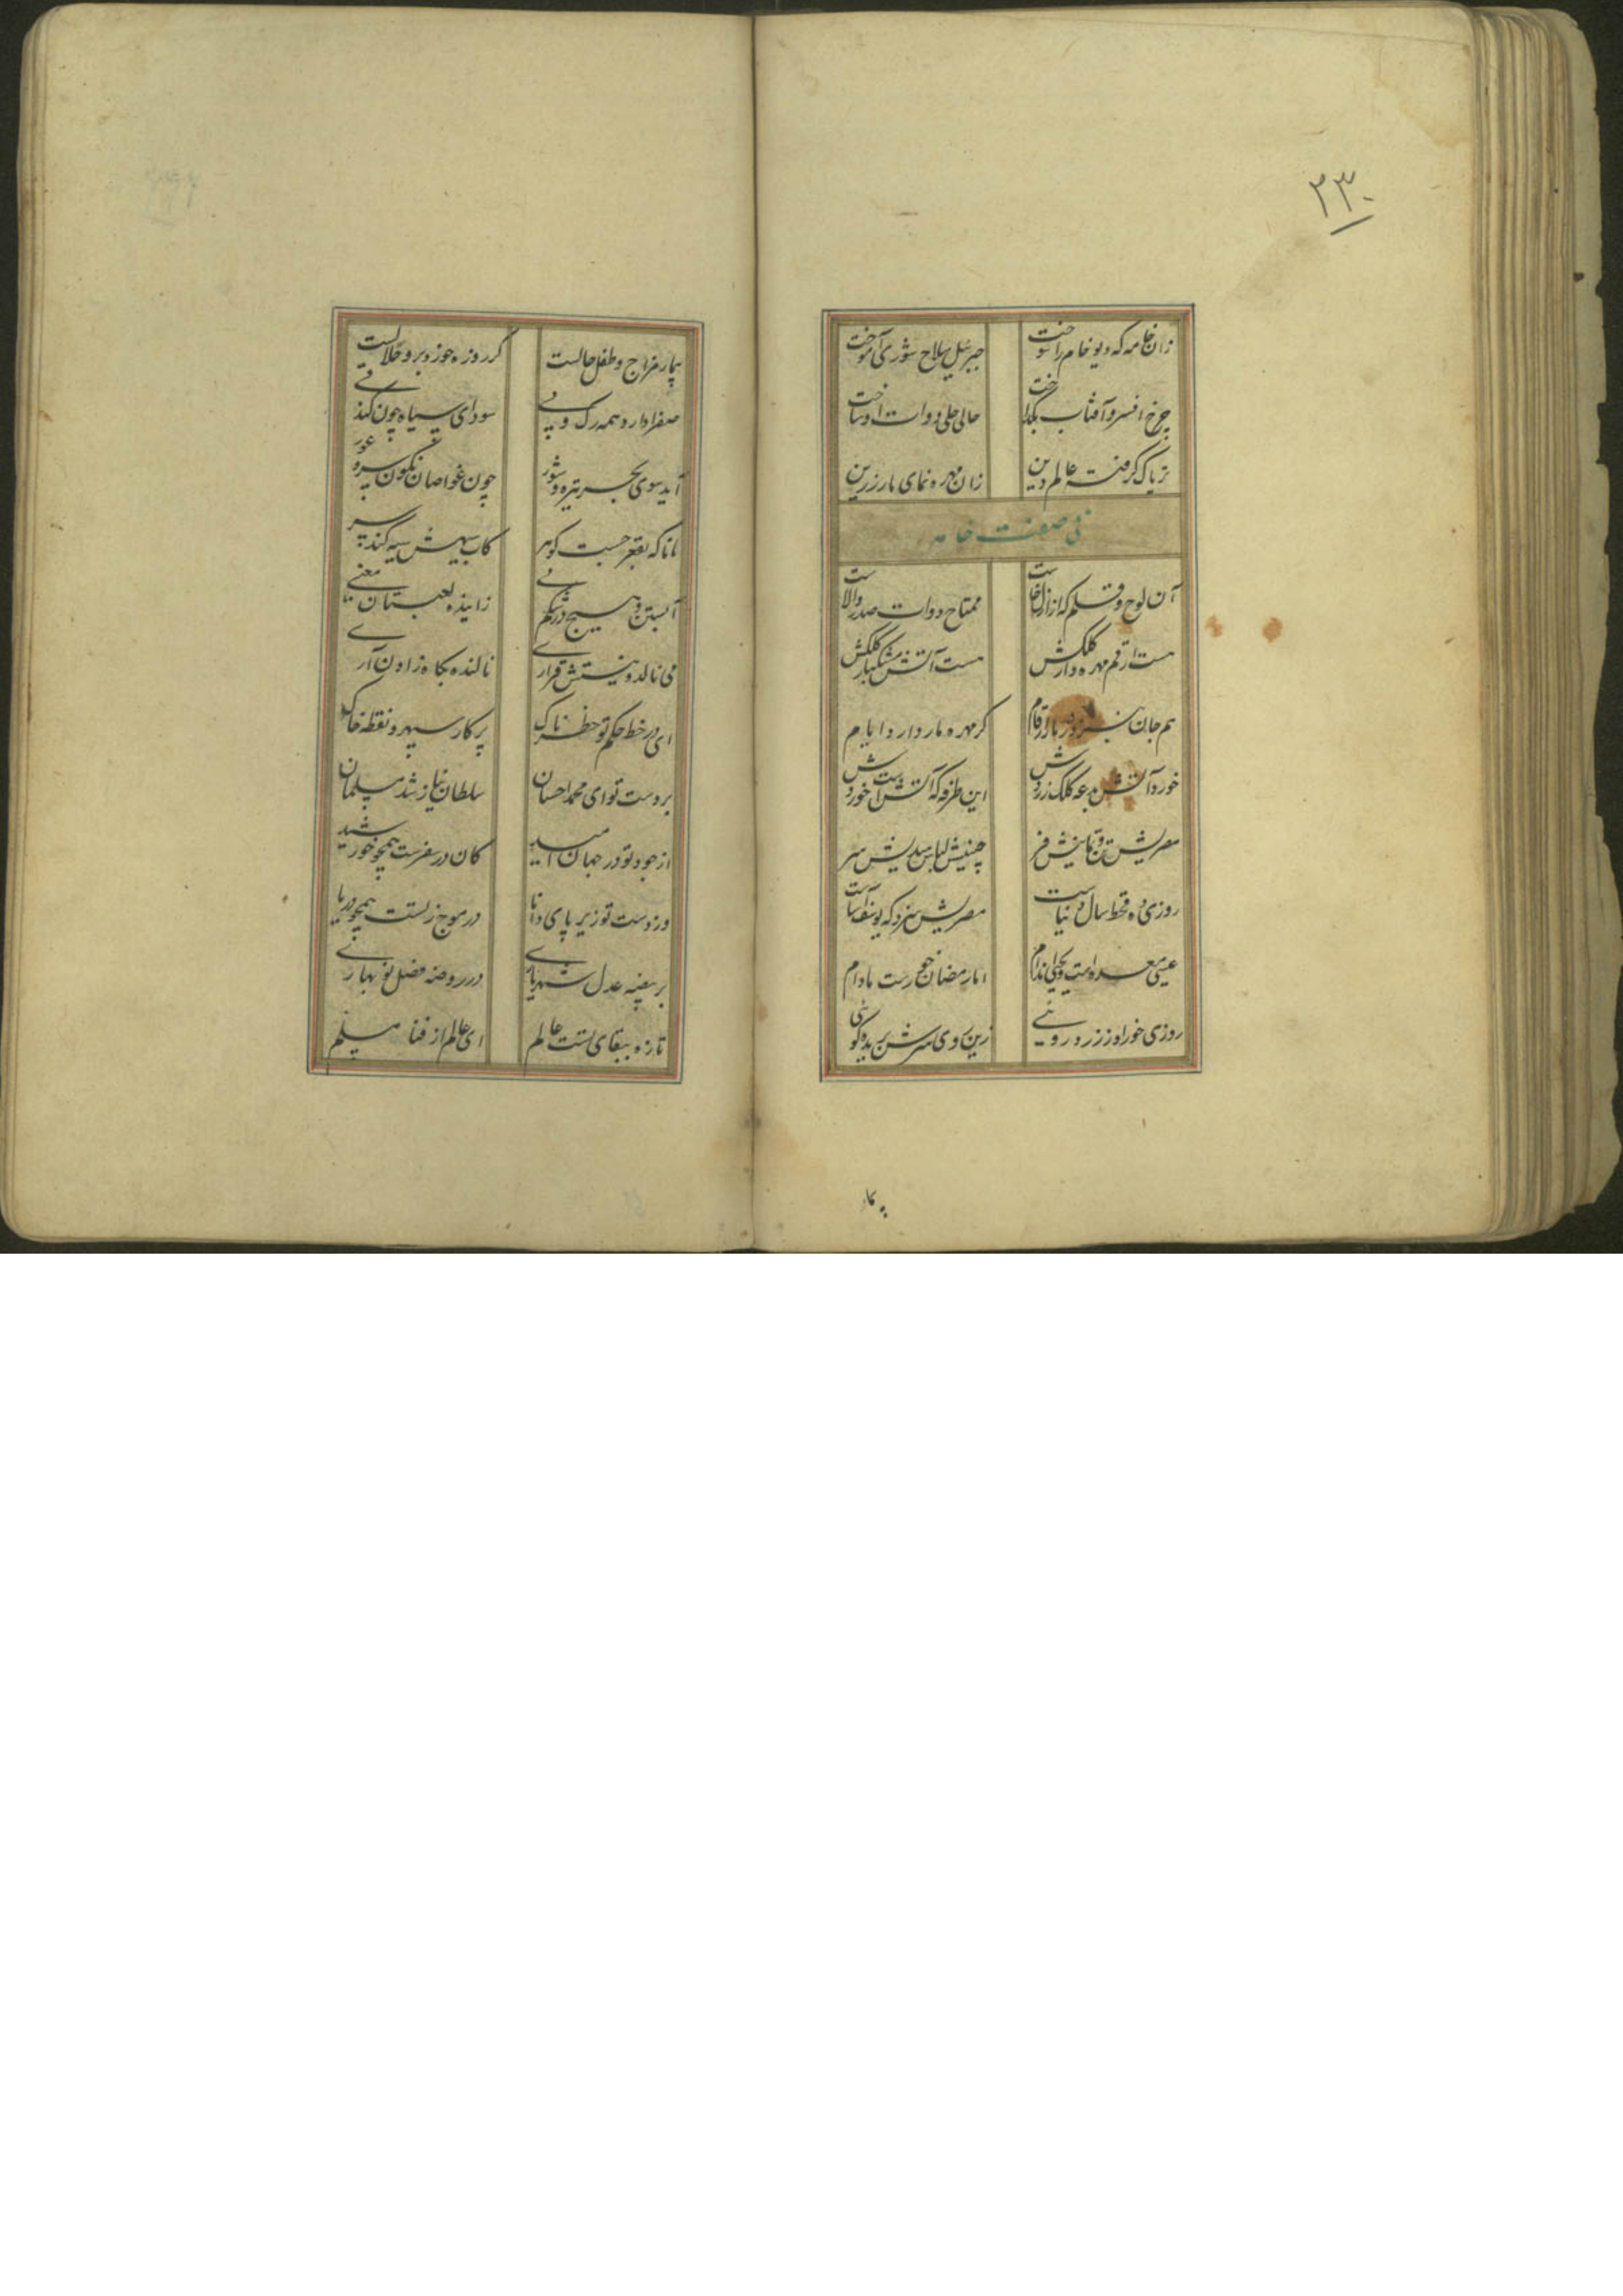 ۲۳۰
زان خامه که دیو خام را سوخت جبرئیل سلاح شوری آموخت
چرخ افسر و آفتاب بگداخت حالی حلی دوات او ساخت
تریاک گرفت عالم دین زان مهره نمای مار زرین
فی صفت خامه
آن لوح و قلم که از ازل خاست ممتاح دوات صدر والاست
هست ارقم مهره دار کلکش هست آتش مشکبار کلکش
هم جان گر مهره مار دارد ایام
خورد آتش کلک زردش این طرفه که آتش است خوردش
مصریش تن و قباش چینیش لباس هندیش سر
روزی ده قحط سال دنیاست مصریش سزد که یوسف آساست
عیسی معده است و یحیی اندام اما رمضان خورست مادام
روزی خور او ز زرد رویی زین روی سرش بریده گویی
بکار
بیمار مزاج و طفل حالست گر روزه خورد برو حلالست
صفرا دارد همه رگ و پی سودای سیاه چون کند قی
آید سوی بحر تیره و شور چون غواصان نگون سر و عور
مانا که بقعر جست گوهر کاب سیهش سیه کند سر
آبستن و هیچ در شکم نی زاینده لعبتان معنی
می نالد و نیستش قراری نالنده بگاه زادن آری
ای در خط حکم تو خطرناک پرکار سپهر و نقطه خاک
بر دست تو ای محمد احسان سلطان نیاز شد مسلمان
از جود تو در جهان امید کان در سفرست همچو خورشید
وز دست تو زیر پای دانا در موج زلست همچو دریا
بر بیضه عدل شهریاری در روضه فضل نو بهاری
تازه ببقای تست عالم ای عالم از فنا مسلم